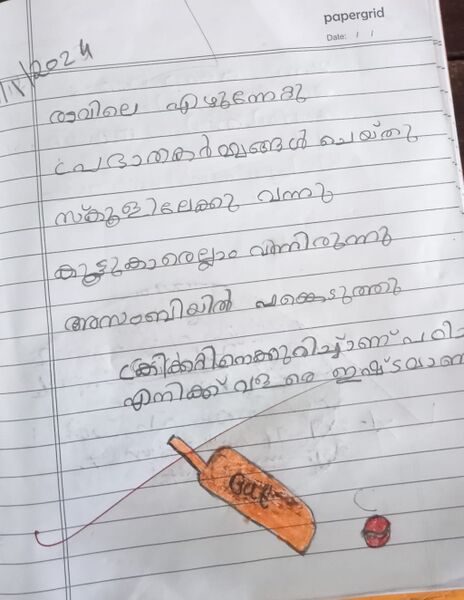 papergrid
Date: / /
/1/2024
രാവിലെ എഴുന്നേറ്റു
പ്രഭാതകർമ്മങ്ങൾ ചെയ്തു
സ്കൂളിലേക്കു വന്നു
കൂട്ടുകാരെല്ലാം വന്നിരുന്നു
അസംബ്ലിയിൽ പങ്കെടുത്തു
ക്രിക്കറ്റിനെക്കുറിച്ചാണ്
എനിക്ക് വളരെ ഇഷ്ടമാണ്
Bat